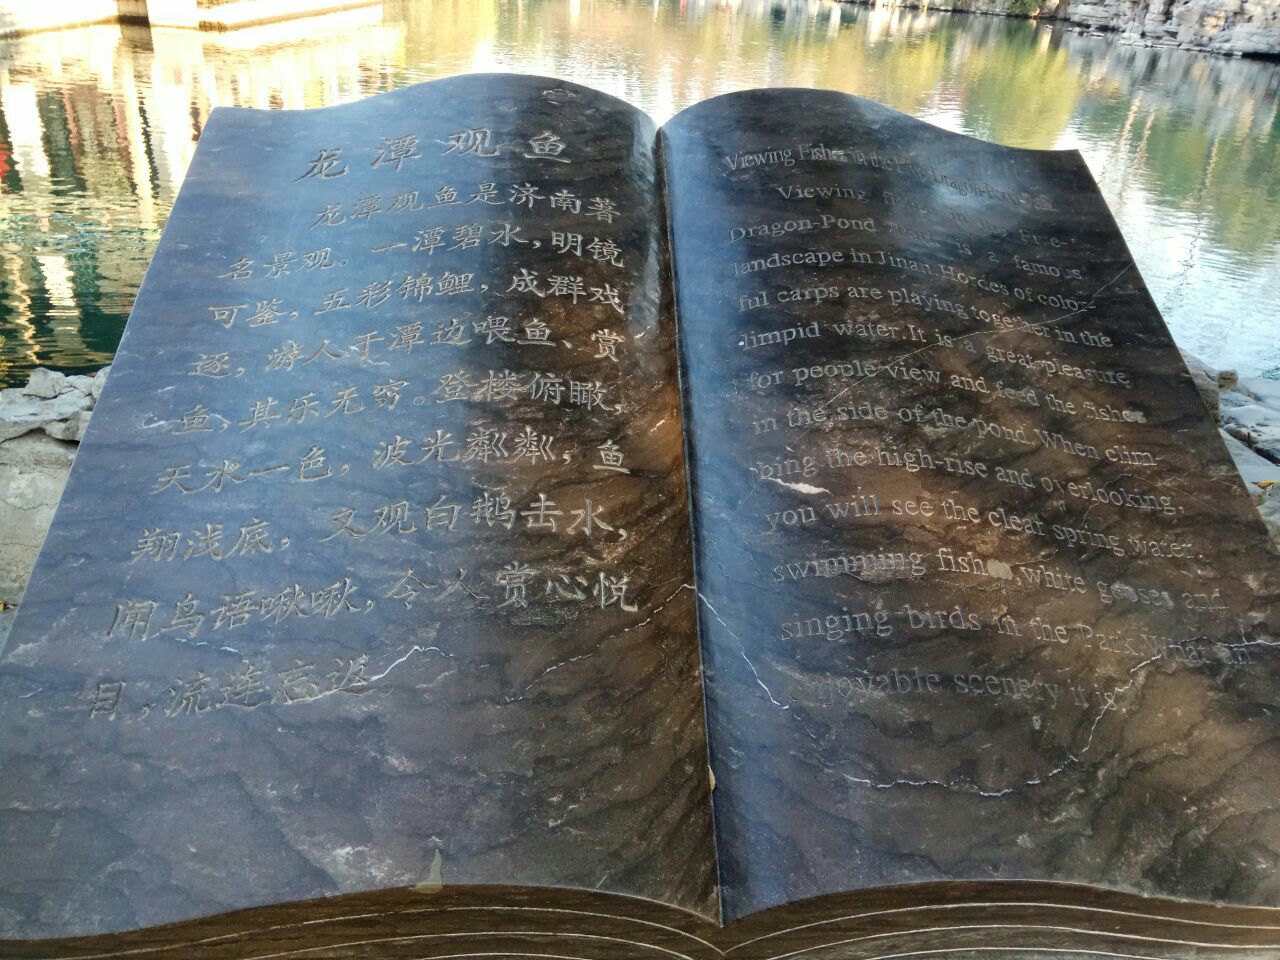 龙潭观鱼
龙潭观鱼是济南著
名景观。一潭碧水，明镜
可鉴，五彩锦鲤，成群戏
逐，游人于潭边喂鱼、赏
鱼，其乐无穷。登楼俯瞰，
天水一色，波光粼粼，鱼
翔浅底，又观白鹅击水，
闻鸟语啾啾，令人赏心悦
目，流连忘返。
Viewing Fishes in the Five Dragon-Pond
Viewing fishes in the Five-
Dragon-Pond is a famous
landscape in Jinan. Hordes of color-
ful carps are playing together in the
limpid water. It is a great pleasure
for people view and feed the fishes
in the side of the pond. When clim-
bing the high-rise and overlooking,
you will see the clear spring water,
swimming fish, white gooses and
singing birds in the Park. What an
enjoyable scenery it is!